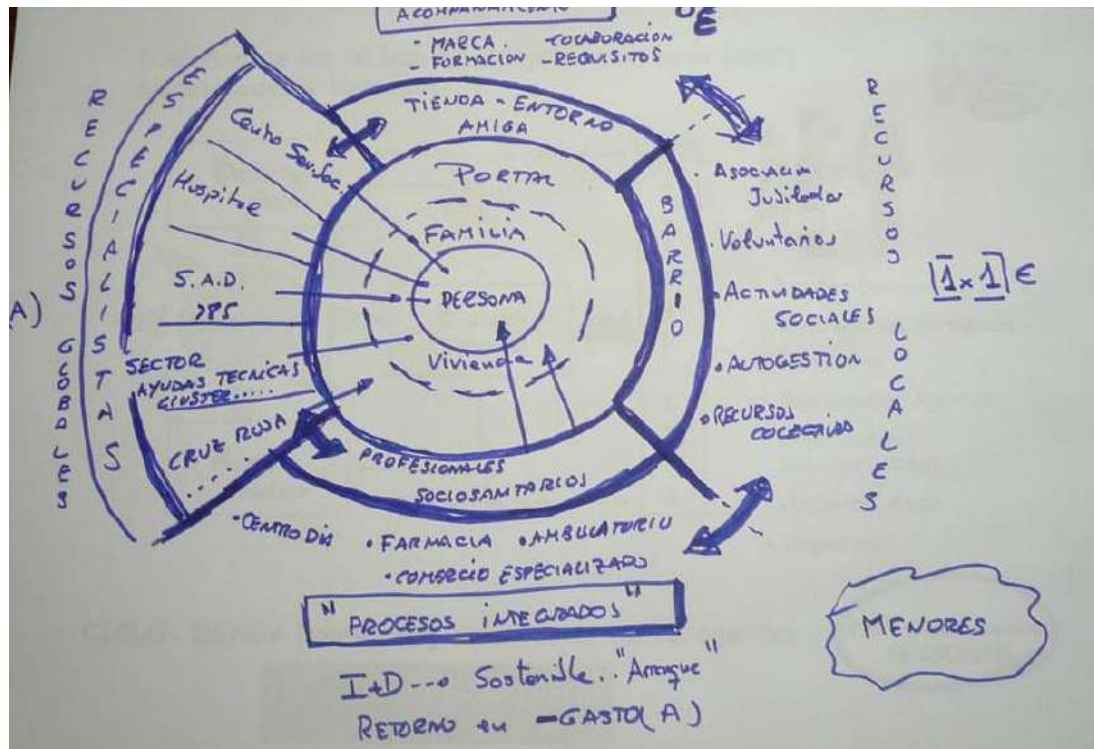 ACOMPAÑAMIENTO
UE
- MARCA. - COLABORACIÓN
- FORMACION - REQUISITOS
RECURSOS GLOBALES
ESPECIALISTAS
A)
Centro Serv. Soc.
Hospital
S.A.D.
>85
SECTOR
AYUDAS TECNICAS
CLUSTER.....
CRUZ ROJA
.....
TIENDA - ENTORNO
AMIGA
PORTAL
FAMILIA
PERSONA
Vivienda
BARRIO
PROFESIONALES
SOCIOSANITARIOS
RECURSOS LOCALES
. Asociación
Jubilados
. Voluntarios
• ACTIVIDADES
SOCIALES
• AUTOGESTIÓN
• RECURSOS
[1x1]€
• CENTRO DÍA
• FARMACIA • AMBULATORIO
• COMERCIO ESPECIALIZADO
"PROCESOS INTEGRADOS"
I+D ---> Sostenible.. "Arranque"
RETORNO en -GASTO (A)
MENORES